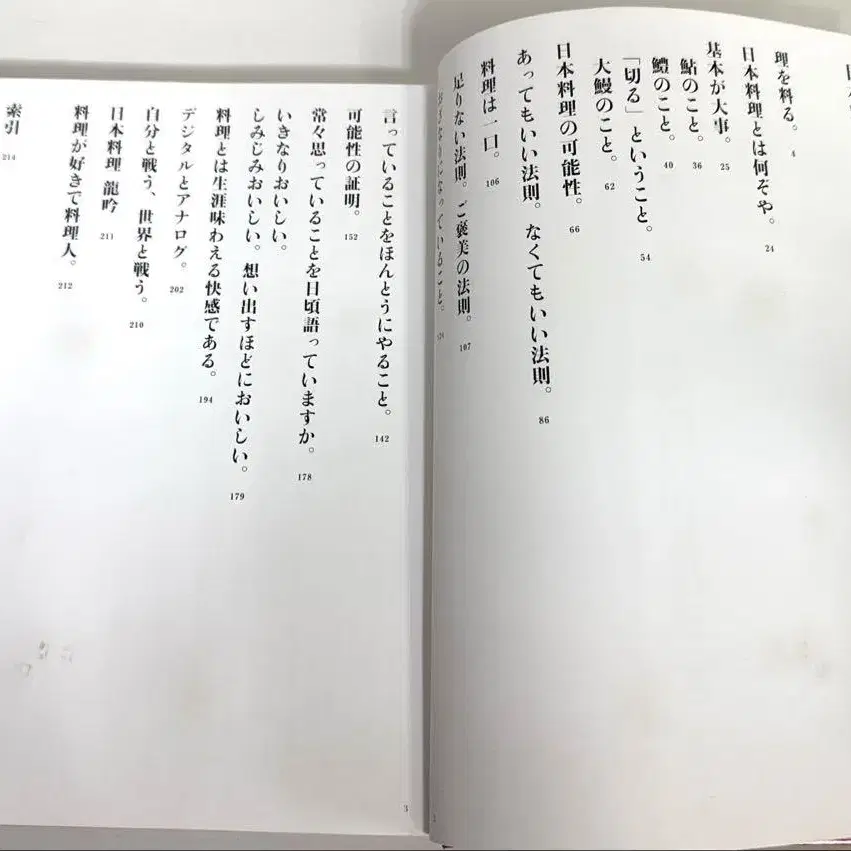 理を料る。 4
日本料理とは何ぞや。 24
基本が大事。 25
鮎のこと。 36
鱧のこと。 40
「切る」ということ。 54
大鰻のこと。 62
日本料理の可能性。 66
あってもいい法則。なくてもいい法則。 86
料理は一口。 106
足りない法則。ご褒美の法則。 107
おざなりになっていること。
言っていることをほんとうにやること。 142
可能性の証明。 152
常々思っていることを日頃語っていますか。 178
いきなりおいしい。
しみじみおいしい。想い出すほどにおいしい。 179
料理とは生涯味わえる快感である。 194
デジタルとアナログ。 202
自分と戦う、世界と戦う。 210
日本料理 龍吟 211
料理が好きで料理人。 212
索引 214
3